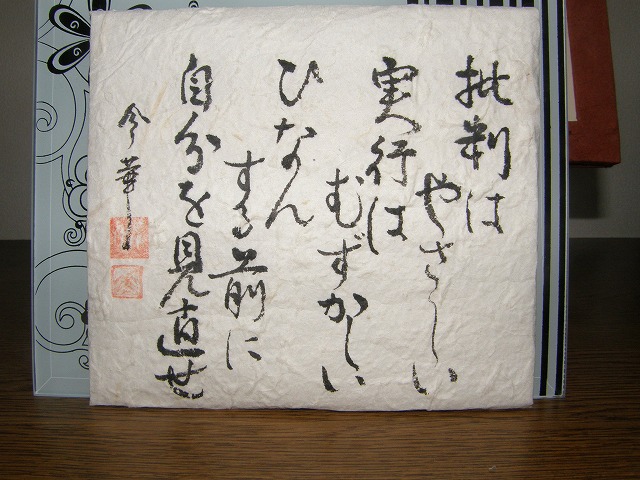 批判は
やさしい
実行は
むずかしい
ひなん
する前に
自分を見直せ
今華